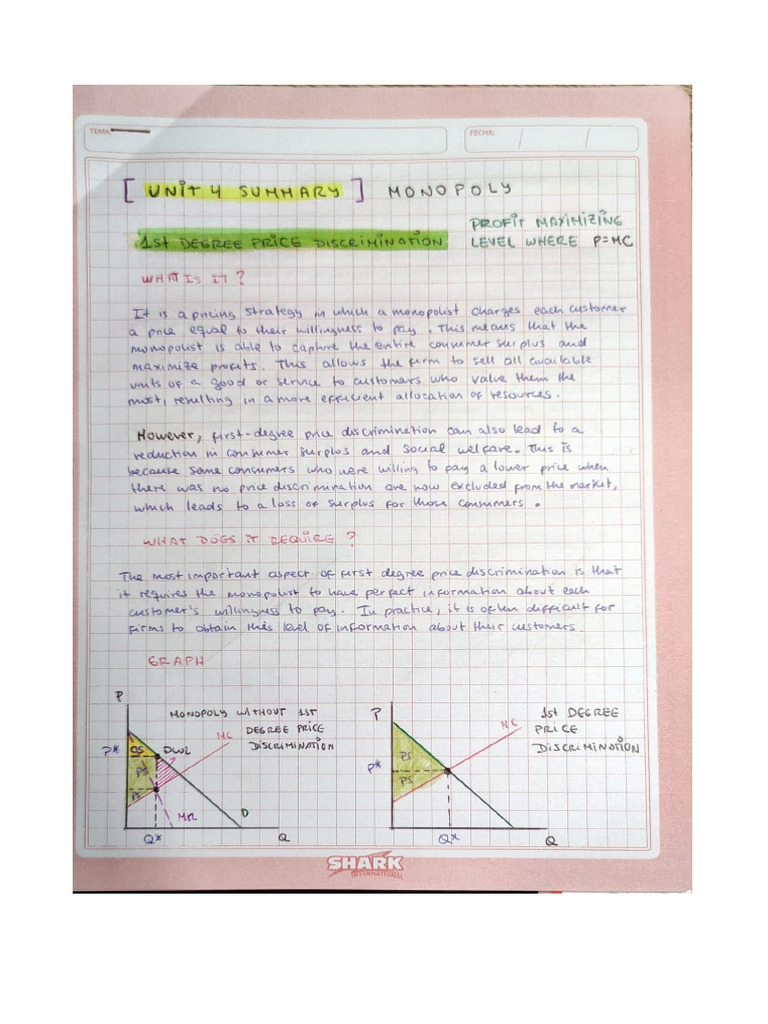 TEMA:
FECHA: / /
[ UNIT 4 SUMMARY ] MONOPOLY
1st DEGREE PRICE DISCRIMINATION
PROFIT MAXIMIZING
LEVEL WHERE P=MC
WHAT IS IT?
It is a pricing strategy in which a monopolist charges each customer
a price equal to their willingness to pay. This means that the
monopolist is able to capture the entire consumer surplus and
maximize profits. This allows the firm to sell all available
units of a good or service to customers who value them the
most, resulting in a more efficient allocation of resources.
However, first-degree price discrimination can also lead to a
reduction in consumer surplus and social welfare. This is
because some consumers who were willing to pay a lower price when
there was no price discrimination are now excluded from the market,
which leads to a loss of surplus for those consumers.
WHAT DOES IT REQUIRE?
The most important aspect of first degree price discrimination is that
it requires the monopolist to have perfect information about each
customer's willingness to pay. In practice, it is often difficult for
firms to obtain this level of information about their customers.
GRAPH
P
MONOPOLY WITHOUT 1ST
DEGREE PRICE
DISCRIMINATION
MC
P*
CS
DWL
PS
PS
MR
D
Q*
Q
P
1st DEGREE
PRICE
DISCRIMINATION
MC
PS
P*
PS
Q*
Q
SHARK
INTERNATIONAL